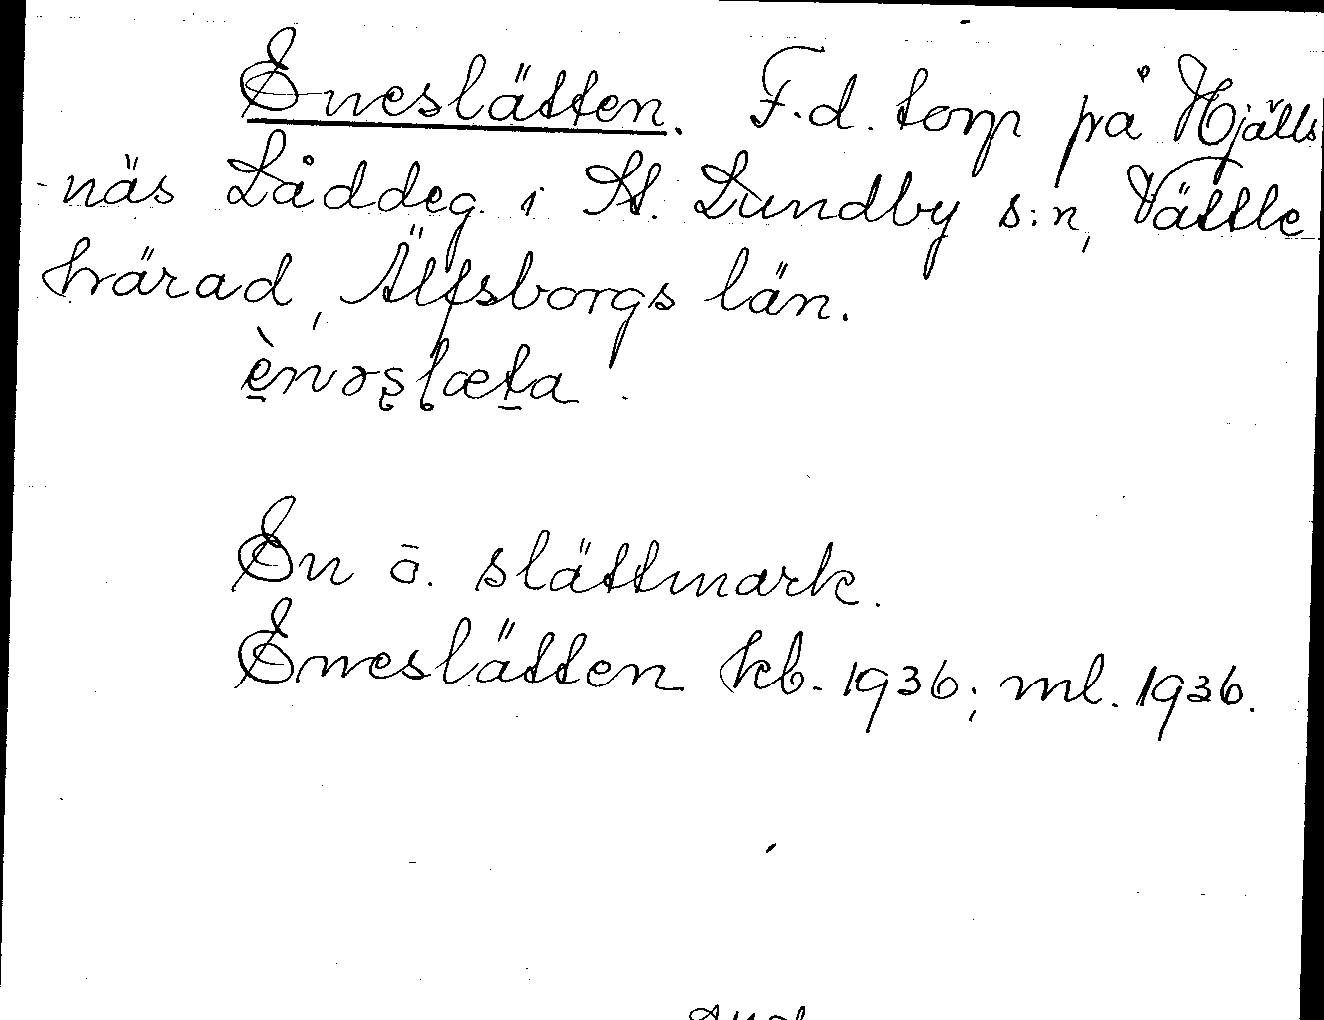 Eneslätten. F.d. torp på Hjälls
näs Låddeg. i St. Lundby s:n, Vättle
härad, Älfsborgs län.
ènəslæta.
En o. slättmark.
Eneslätten kb. 1936; ml. 1936.